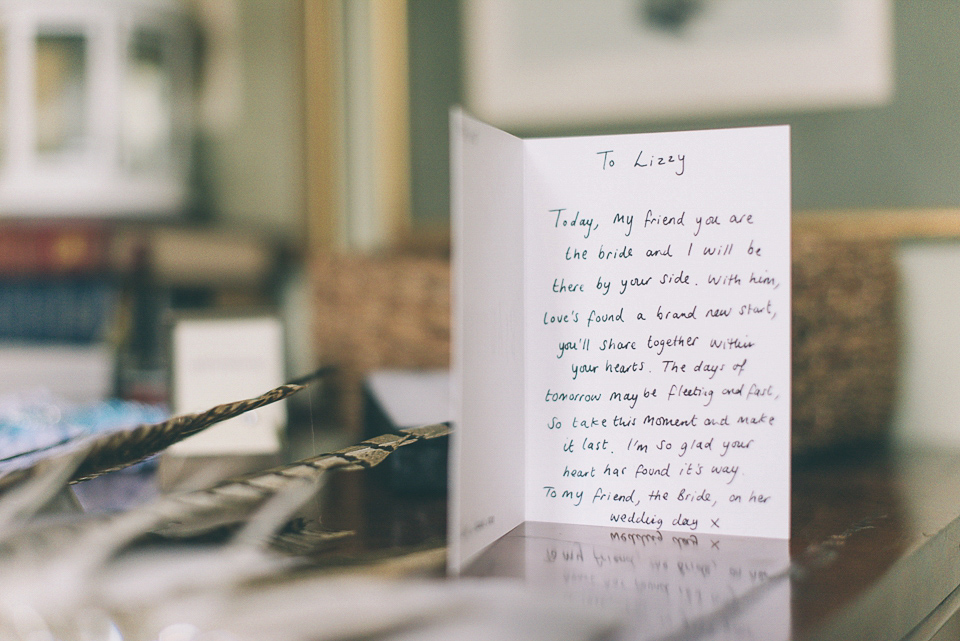 To Lizzy
Today, my friend you are
the bride and I will be
there by your side. With him,
love's found a brand new start,
you'll share together within
your hearts. The days of
tomorrow may be fleeting and fast,
so take this moment and make
it last. I'm so glad your
heart has found it's way.
To my friend, the Bride, on her
wedding day x